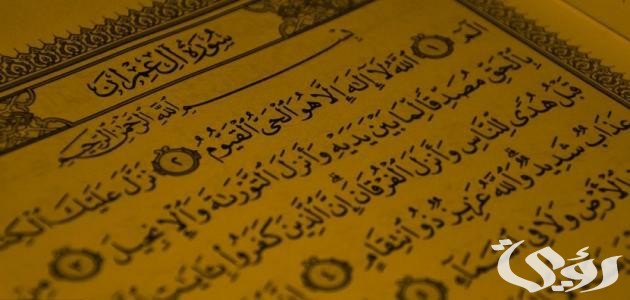 سُورَةُ آلِ عِمْرَانَ
بِسْمِ ٱللَّهِ ٱلرَّحْمَٰنِ ٱلرَّحِيمِ
الٓمٓ ١ ٱللَّهُ لَآ إِلَٰهَ إِلَّا هُوَ ٱلْحَىُّ ٱلْقَيُّومُ ٢ نَزَّلَ عَلَيْكَ
بِٱلْحَقِّ مُصَدِّقًا لِّمَا بَيْنَ يَدَيْهِ وَأَنزَلَ ٱلتَّوْرَىٰةَ وَٱلْإِنجِيلَ ٣
قَبْلُ هُدًى لِّلنَّاسِ وَأَنزَلَ ٱلْفُرْقَانَ إِنَّ ٱلَّذِينَ كَفَرُوا۟ بِـَٔايَٰتِ
عَذَابٌ شَدِيدٌ وَٱللَّهُ عَزِيزٌ ذُو ٱنتِقَامٍ ٤
ٱلْأَرْضِ وَلَا فِى ٱلسَّمَآءِ ٥
رؤية